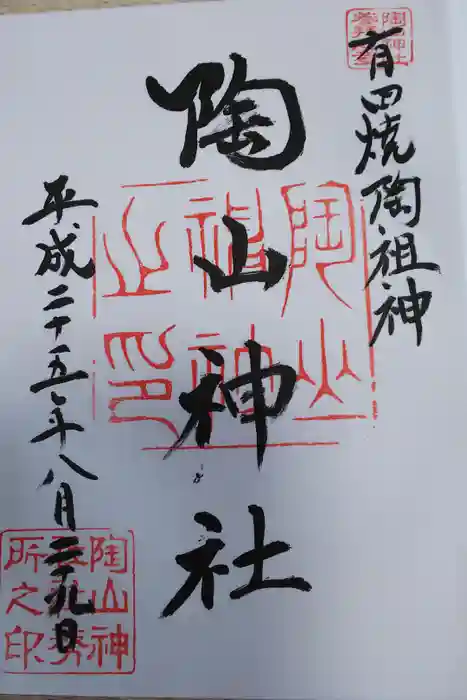 有田焼陶祖神
陶山神社
平成二十五年八月二十九日
陶山神社之印
陶山神
社務
所之印